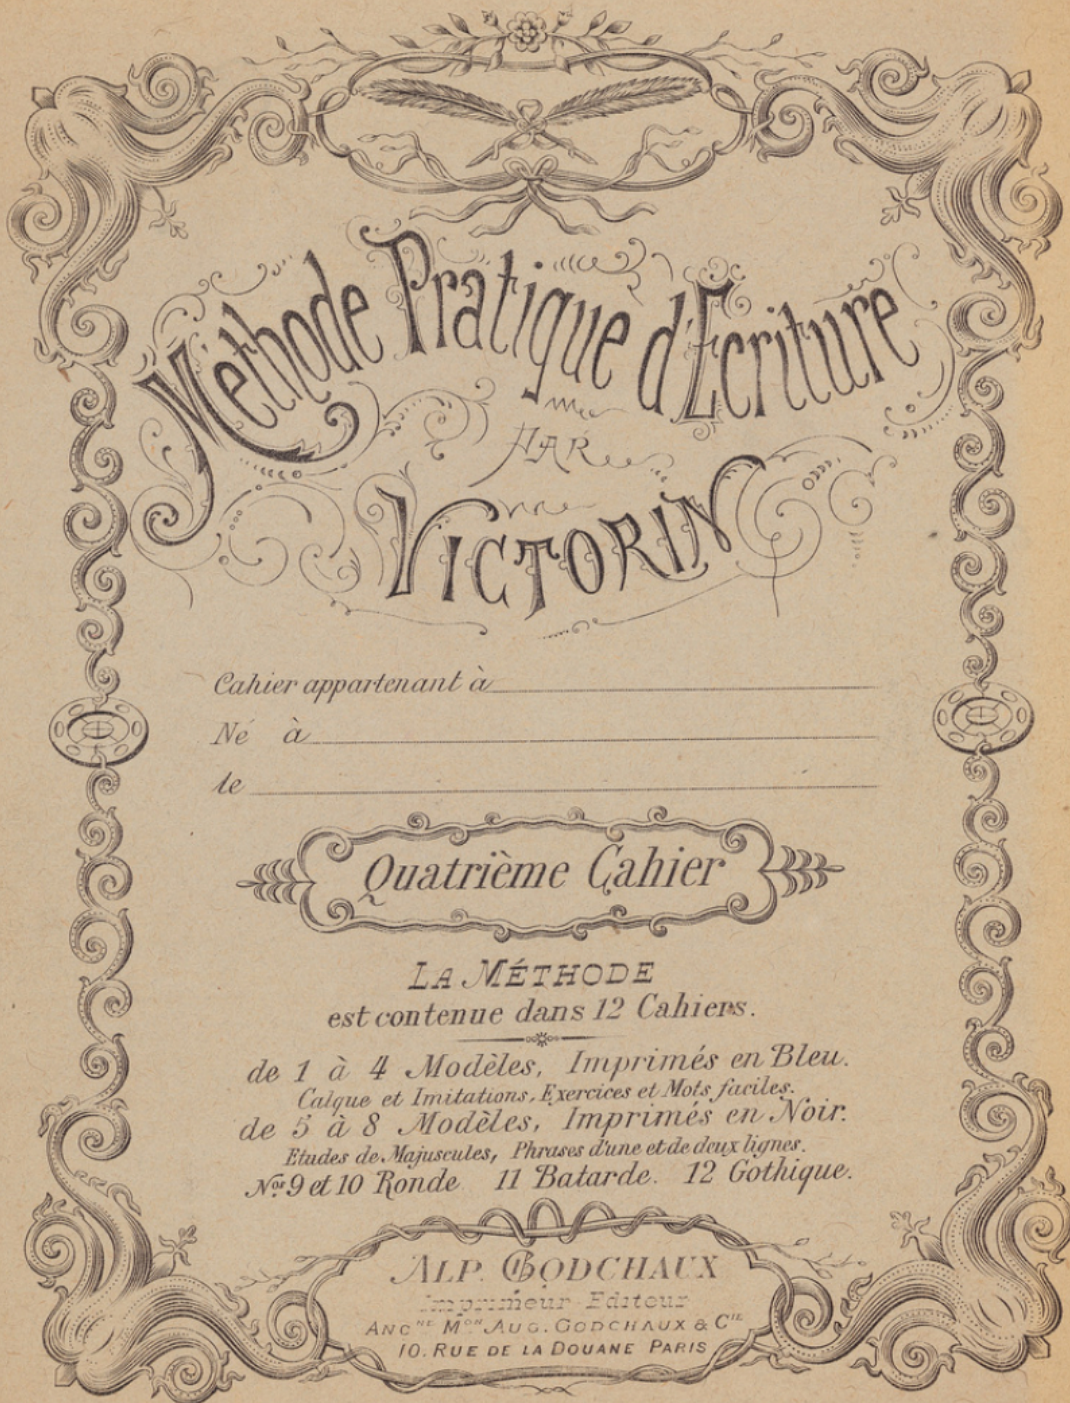 Méthode Pratique d'Ecriture
PAR
VICTORIN
Cahier appartenant à
Né à
le
Quatrième Cahier
LA MÉTHODE
est contenue dans 12 Cahiers.
de 1 à 4 Modèles, Imprimés en Bleu.
Calque et Imitations, Exercices et Mots faciles.
de 5 à 8 Modèles, Imprimés en Noir.
Etudes de Majuscules, Phrases d'une et de deux lignes.
Nos 9 et 10 Ronde 11 Batarde. 12 Gothique.
ALP. GODCHAUX
Imprimeur Editeur
ANCNE MON AUG. GODCHAUX & CIE
10. RUE DE LA DOUANE PARIS